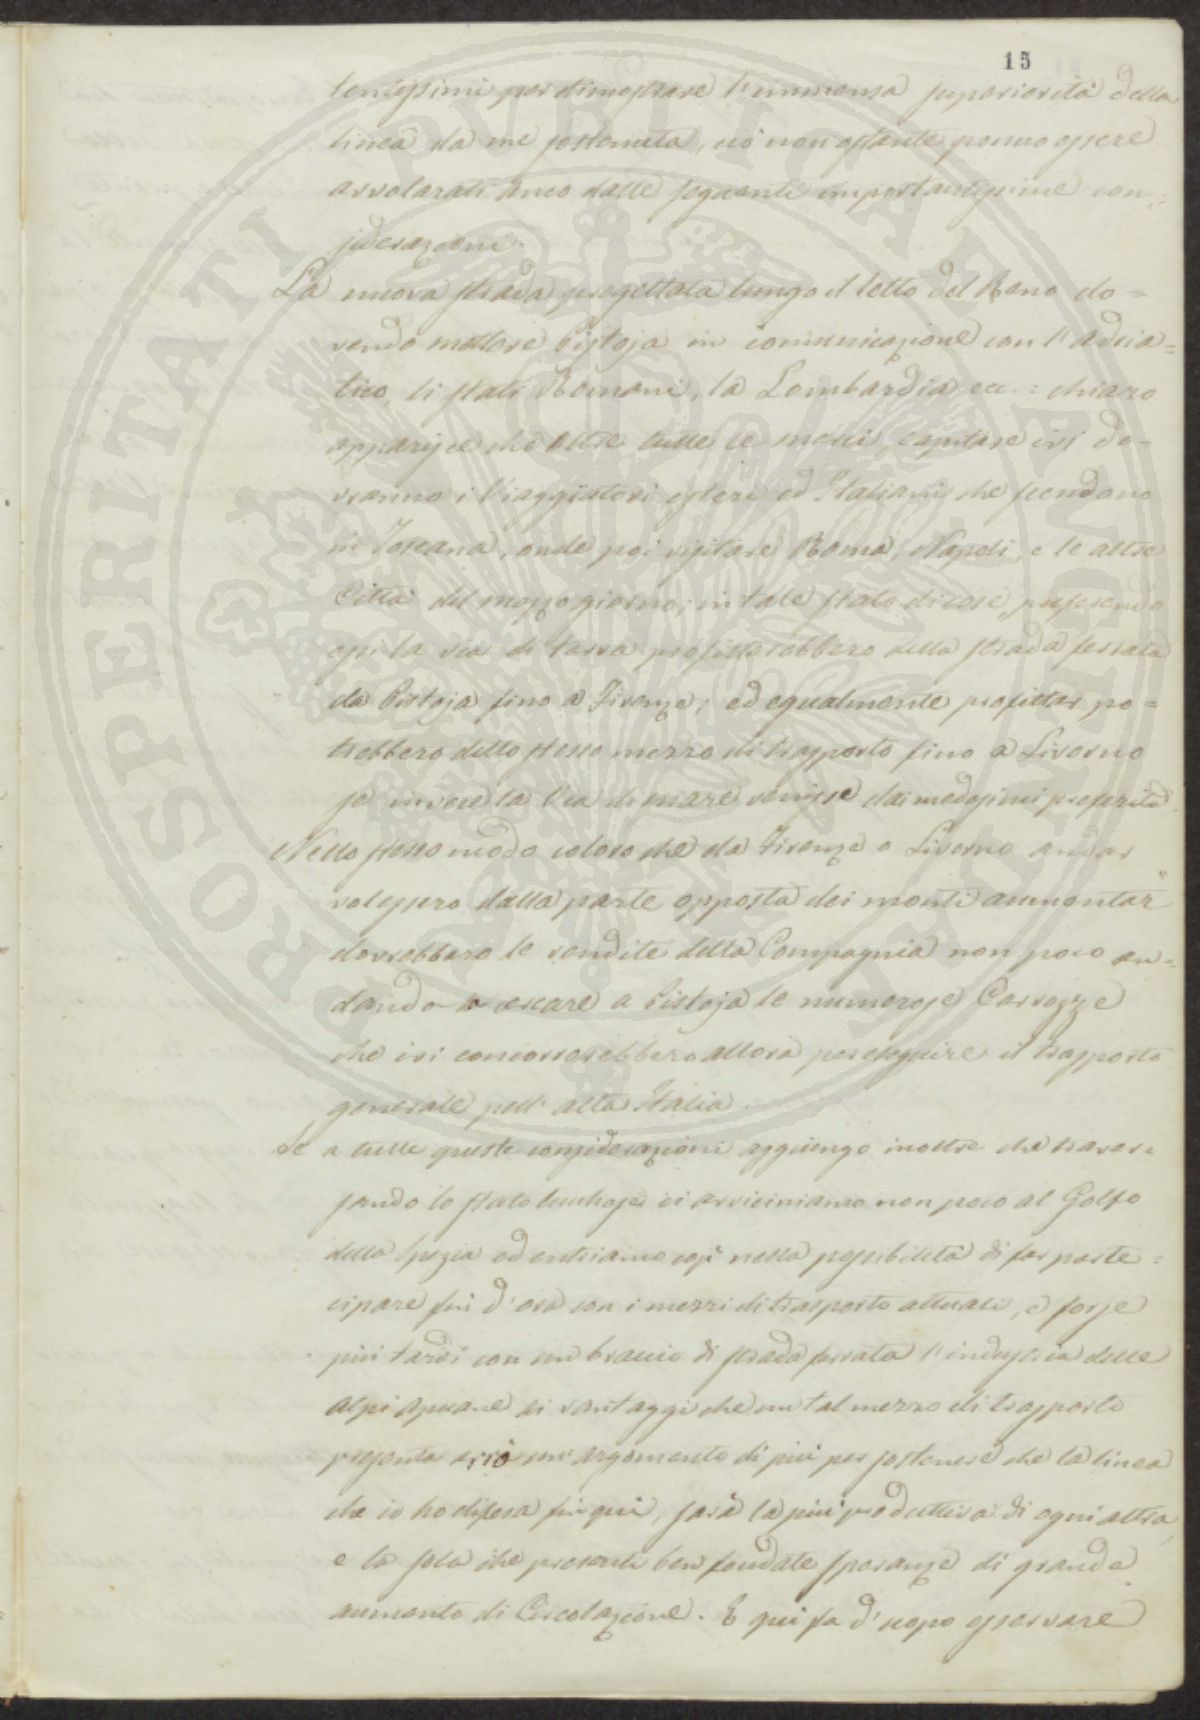 15
tentissimi per dimostrare l'immensa superiorità della
linea da me sostenuta, ciò non ostante ponno essere
avvalorati anco dalle seguenti importantissime con=
siderazioni.
La nuova strada progettata lungo il letto del Reno do=
vendo mettere Pistoja in comunicazione con l'Adria=
tico, li stati Romani, la Lombardia ecc.: chiaro
apparisce che oltre tutte le merci, capitare ivi do=
vranno i Viaggiatori esteri ed Italiani che scendano
in Toscana, onde poi visitare Roma, Napoli, e le altre
Città del mezzogiorno; in tale stato di cose preferendo
essi la via di terra profitterebbero della strada ferrata
da Pistoja fino a Firenze; ed egualmente profittar po=
trebbero dello stesso mezzo di trasporto fino a Livorno
se invece la Via di mare venisse dai medesimi preferita.
Nello stesso modo coloro che da Firenze o Livorno andar
volessero dalla parte opposta dei monti aumentar
dovrebbero le rendite della Compagnia non poco an=
dando a cercare a Pistoja le numerose Carrozze
che ivi concorrerebbero allora per eseguire il trasporto
generale pell'alta Italia.
Se a tutte queste considerazioni aggiungo inoltre che traver=
sando lo stato lucchese ci avviciniamo non poco al Golfo
della Spezia ed entriamo così nella possibilità di far parte=
cipare fin d'ora con i mezzi di trasporto attuali, e forse
più tardi con un braccio di strada ferrata l'industria delle
alpi apuane ai vantaggi che un tal mezzo di trasporto
presenta avrò un'argomento di più per sostenere che la linea
che io ho difesa fin qui, sarà la più produttiva di ogni altra,
e la sola che presenti ben fondate speranze di grande
aumento di Circolazione. E qui fa d'uopo osservare
PROSPERITATI PUBLICAE